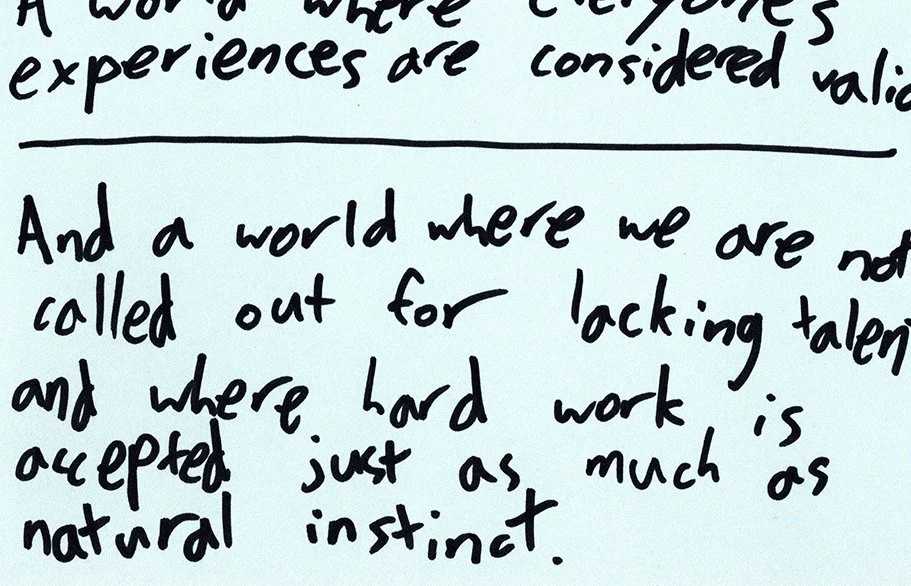 A world where everyone's
experiences are considered valid
And a world where we are not
called out for lacking talent
and where hard work is
accepted just as much as
natural instinct.